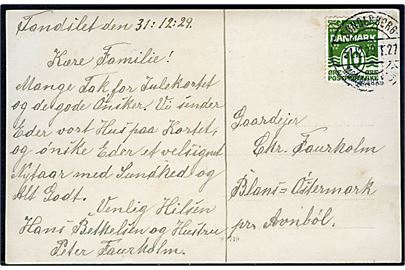 Fandslet den 31:12:29.
Kære Familie!
Mange Tak for Julekortet
og de gode Ønsker. Vi sender
Eder vort Hus paa Kortet,
og ønske Eder et velsignet
Nytaar med Sundhed og
Alt Godt.
Venlig Hilsen
Hans Bertelsen og Hustru
Peter Faurholm.
DANMARK
10
Gaardejer
Chr. Faurholm
Blans=Østermark
pr. Avnbøl.